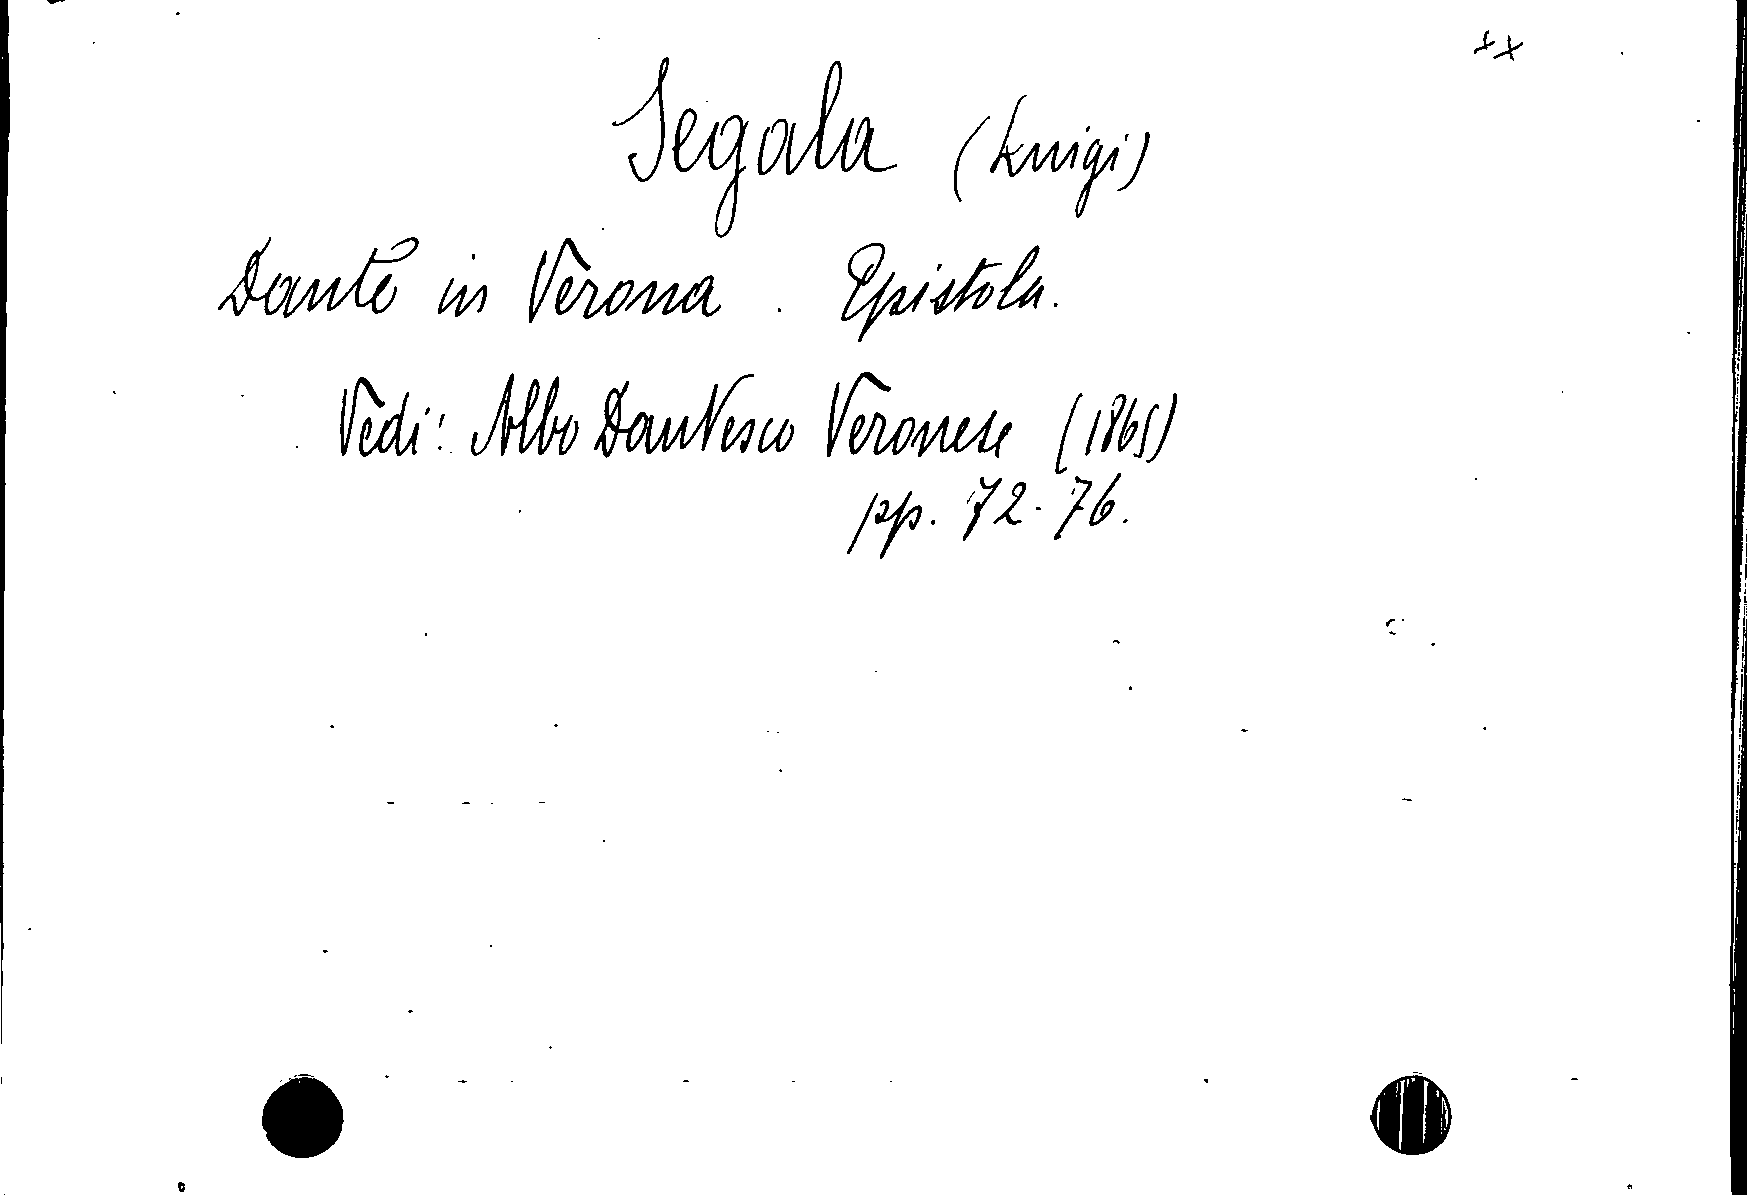 Segala (Luigi)
Dante in Verona. Epistola.
Vedi: Albo Dantesco Veronese (1865)
pp. 72-76.